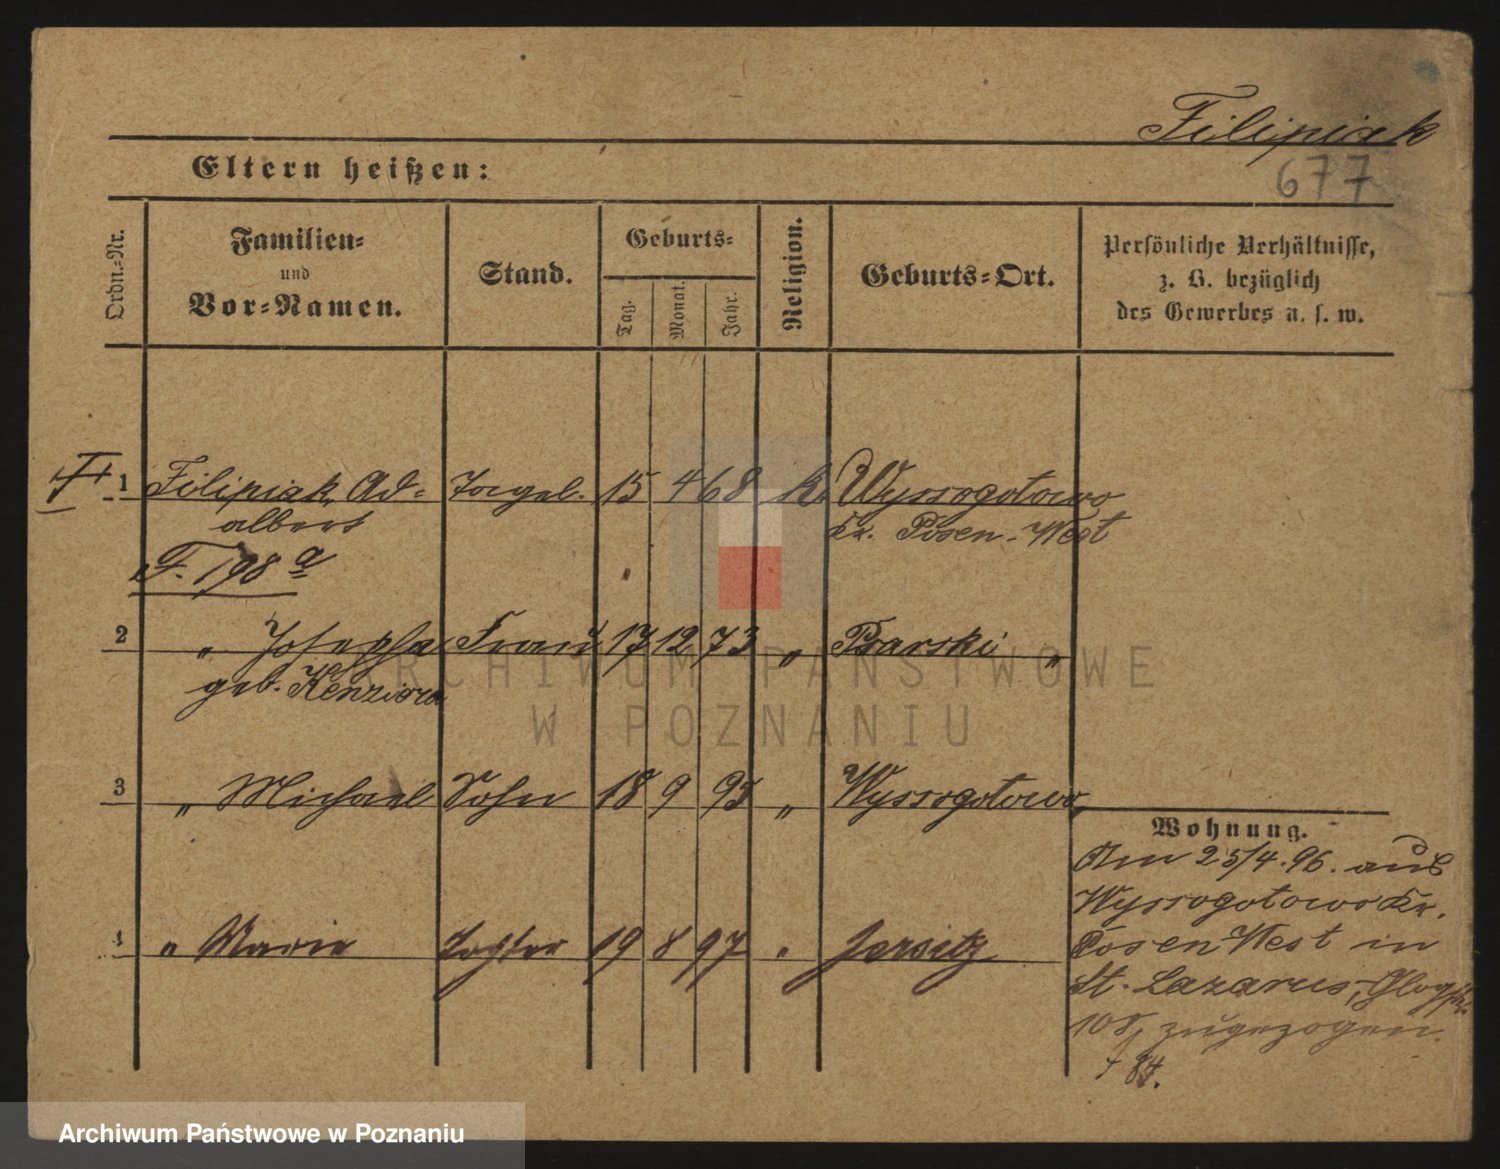 Filipiak
677
Eltern heißen:
Ordn.-Nr.
Familien-
und
Vor-Namen.
Stand.
Geburts-
Tag.
Monat.
Jahr.
Religion.
Geburts-Ort.
Persönliche Verhältnisse,
z. B. bezüglich
des Gewerbes u. s. w.
1 Filipiak, Ad- Tagel. 15 4 68 k. Wyssogotowo
albert Kr. Posen-West
F. 198 a
2 " Josepha Frau 17 12 73 " Psarski "
geb. Kenziora
3 " Michael Sohn 18 9 95 " Wyssogotowo
Wohnung.
Am 25/4.96. aus
Wyssogotowo Kr.
4 " Marie Tochter 19 8 97 " Jersitz
Posen West in
St. Lazarus, Glog.
108, zugezogen.
ARCHIWUM PAŃSTWOWE
W POZNANIU
Archiwum Państwowe w Poznaniu